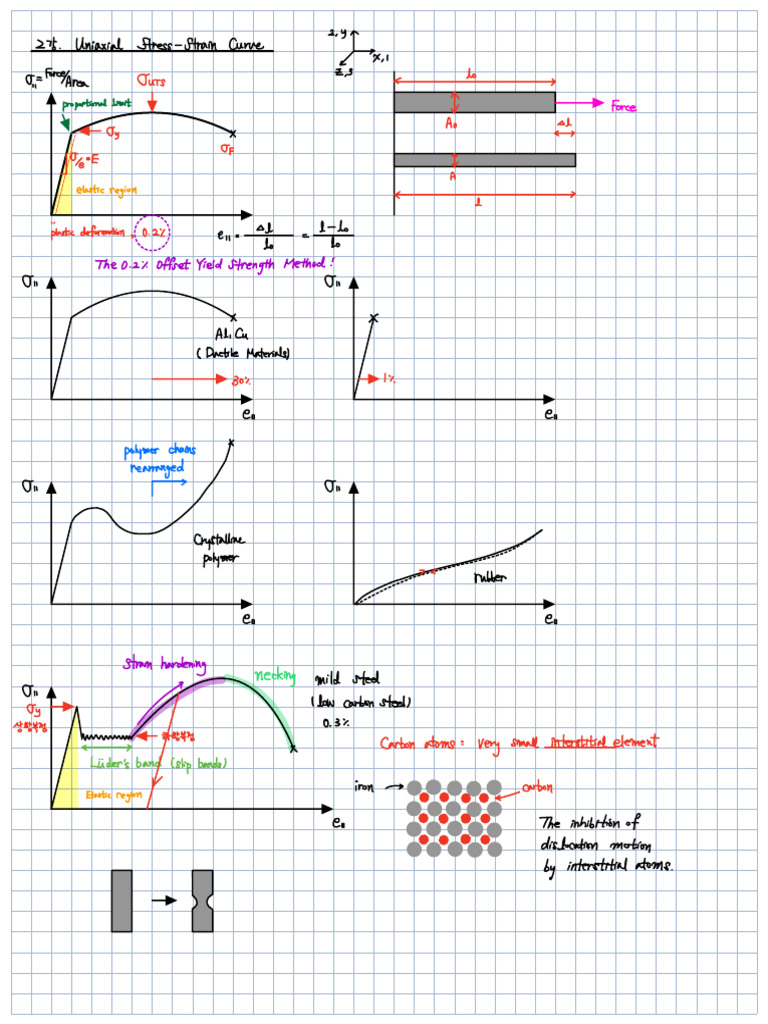 2강. Uniaxial Stress-Strain Curve
2, y
x, 1
z, 3
σ₁₁ = Force/Area
σUTS
proportional limit
σy
σF
σ/e = E
elastic region
plastic deformation, 0.2%
e₁₁ = Δl/l₀ = l-l₀/l₀
The 0.2% Offset Yield Strength Method!
l₀
A₀
Force
Δl
A
l
σ₁₁
Al, Cu
(Ductile Materials)
30%
e₁₁
σ₁₁
1%
e₁₁
polymer chains
rearranged
σ₁₁
Crystalline
polymer
e₁₁
σ₁₁
rubber
e₁₁
strain hardening
necking
mild steel
(low carbon steel)
0.3%
σ₁₁
σy
상항복점
하항복점
Lüder's band (slip bands)
Elastic region
e₁₁
Carbon atoms: very small interstitial element
iron
carbon
The inhibition of
dislocation motion
by interstitial atoms.